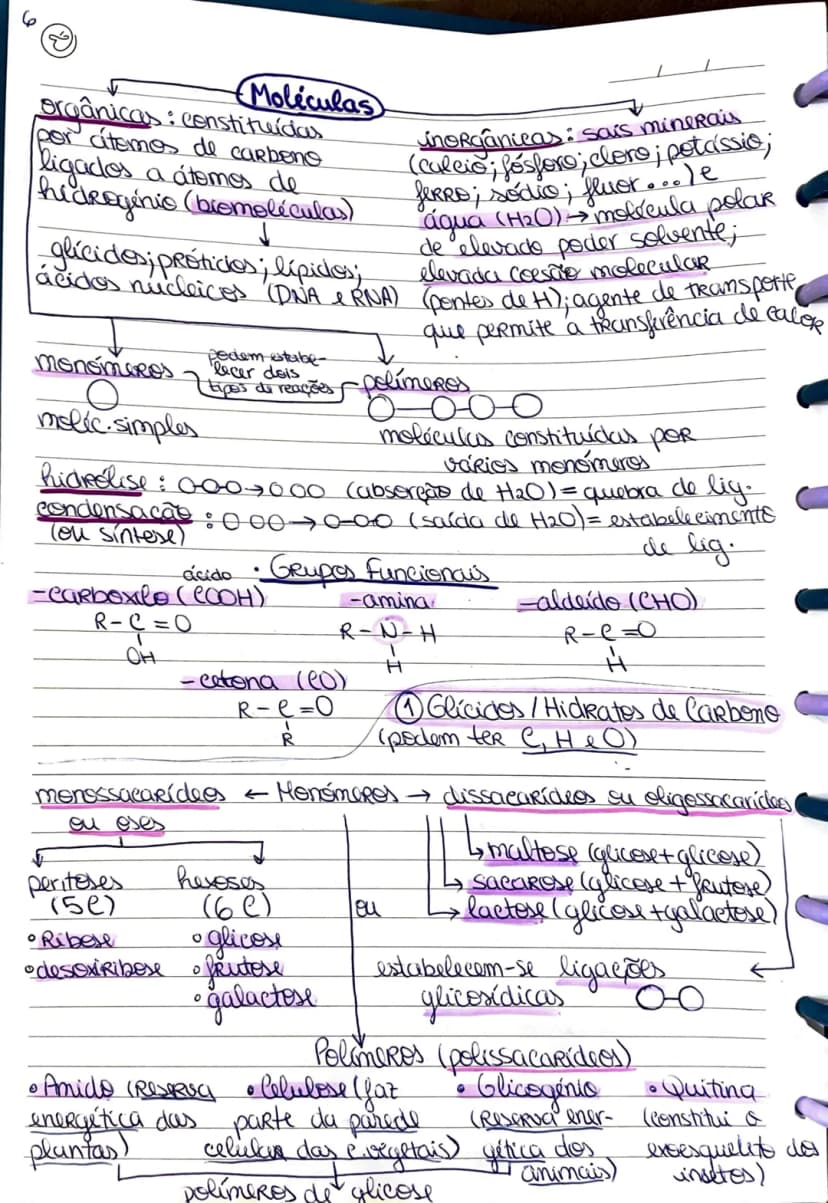 6
Moléculas
orgânicas: constituídas
por átomos de carbono
ligados a átomos de
hidrogénio (biomoléculas)
↓
glícidos; prótidos; lípidos;
ácidos nucleicos (DNA e RNA)
inorgânicas: sais minerais
(cálcio; fósforo; cloro; potássio;
ferro; sódio; fluor...) e
água (H2O) → molécula polar
de elevado poder solvente;
elevada coesão molecular
(pontes de H); agente de transporte
que permite a transferência de calor
monómeros
moléc. simples
podem estabe-
lecer dois
tipos de reações
polímeros
moléculas constituídas por
vários monómeros
hidrólise: O-O-O→O O O (absorção de H2O) = quebra de lig.
condensação: O O O → O-O-O (saída de H2O) = estabelecimento
(ou síntese) de lig.
• Grupos Funcionais
ácido
-carboxilo (COOH) -amina -aldeído (CHO)
R-C=O R-N-H R-C=O
OH H H
-cetona (CO)
R-C=O
R
① Glícidos/Hidratos de Carbono
(podem ter C, H e O)
monossacarídeos ← Monómeros → dissacarídeos ou oligossacarídeos
ou oses
pentoses hexoses
(5C) (6C)
• Ribose • glicose
• desoxiribose • frutose
• galactose
ou
↳ maltose (glicose+glicose)
↳ sacarose (glicose+frutose)
↳ lactose (glicose+galactose)
estabelecem-se ligações
glicosídicas O-O
Polímeros (polissacarídeos)
• Amido (Reserva • Celulose (faz • Glicogénio • Quitina
energética das parte da parede (Reserva ener- (constitui o
plantas) celular das c. vegetais) gética dos exoesqueleto dos
animais) insetos)
polímeros de glicose